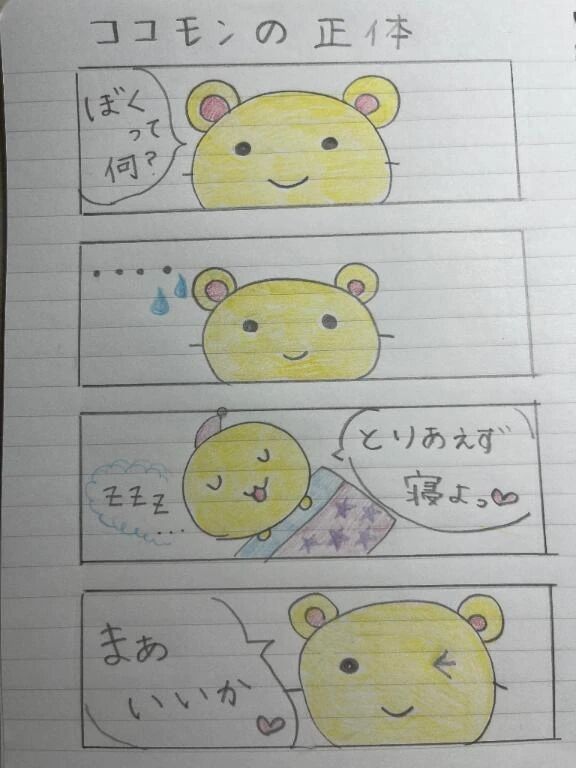 ココモンの正体
ぼく
って
何?
・・・・
とりあえず
寝よっ♡
zzz...
まあ
いいか♡